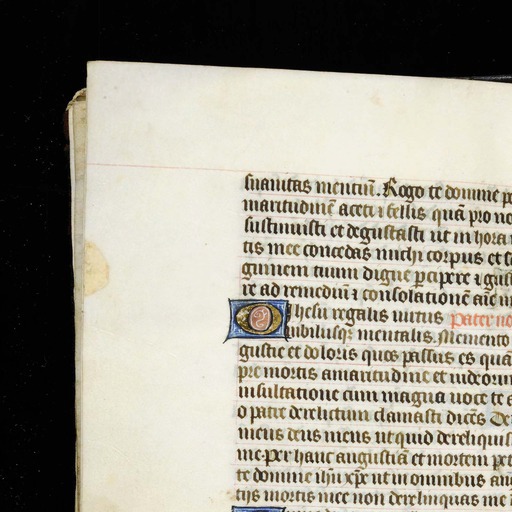 suauitas mentiū. Rogo te domine p
maritudinē aceti ⁊ fellis quā pro no
sustinuisti et degustasti ut in hora
tis mee concedas michi corpus et s
guinem tuum digne ꝑcipere ⁊ gus
re ad remediū ⁊ consolationē aīe m
O Ihesu regalis uirtus Pater no
iubilusqꝫ mentalis. Memento
gustie et doloris quos passus es quā
pre mortis amaritudine et iudeorū
insultatione cum magna uoce te a
o patre derelictum clamasti dicēs De
meus deus meus utquid dereliquis
me. Per hanc angustiā et mortem pet
te domine ihū xp̄e ut in omnibus an
tijs mortis mee non derelinquas me